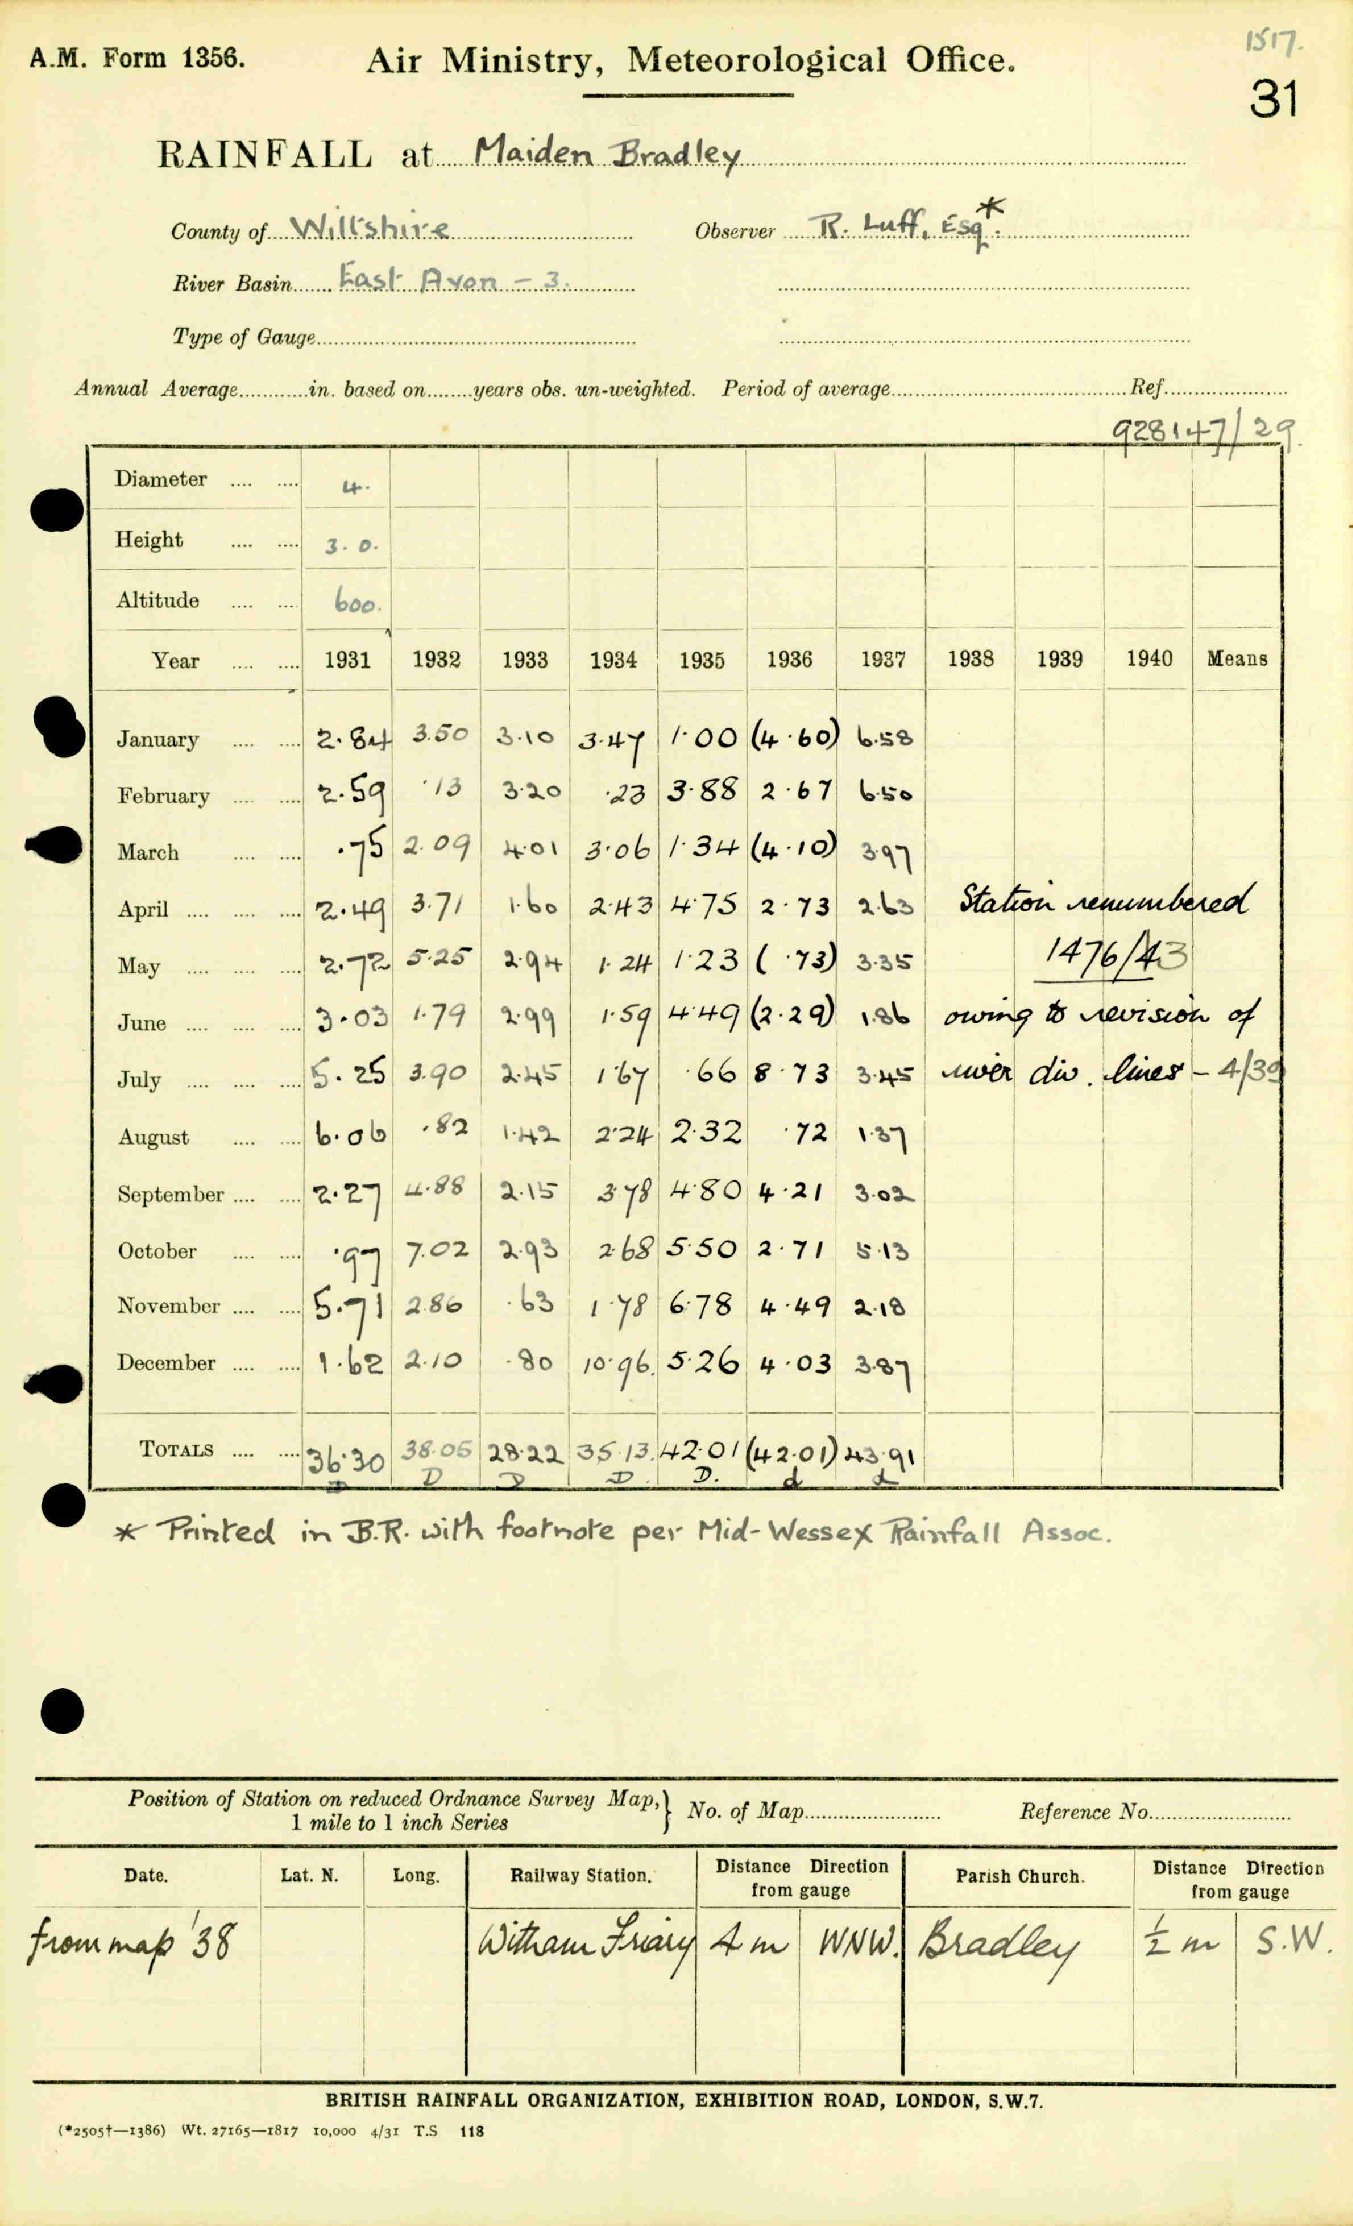 1517.
A.M. Form 1356. Air Ministry, Meteorological Office.
31
RAINFALL at Maiden Bradley
County of Wiltshire Observer R. Luff, Esq.*
River Basin East Avon - 3.
Type of Gauge
Annual Average in. based on years obs. un-weighted. Period of average Ref.
928147/29.
Diameter 4.
Height 3.0.
Altitude 600.
Year 1931 1932 1933 1934 1935 1936 1937 1938 1939 1940 Means
January 2.84 3.50 3.10 3.47 1.00 (4.60) 6.58
February 2.59 .13 3.20 .23 3.88 2.67 6.50
March .75 2.09 4.01 3.06 1.34 (4.10) 3.97
April 2.49 3.71 1.60 2.43 4.75 2.73 2.63 Station renumbered
May 2.72 5.25 2.94 1.24 1.23 (.73) 3.35 1476/43
June 3.03 1.79 2.99 1.59 4.49 (2.29) 1.86 owing to revision of
July 5.25 3.90 2.45 1.67 .66 8.73 3.45 river div. lines - 4/39
August 6.06 .82 1.42 2.24 2.32 .72 1.37
September 2.27 4.88 2.15 3.78 4.80 4.21 3.02
October .97 7.02 2.93 2.68 5.50 2.71 5.13
November 5.71 2.86 .63 1.78 6.78 4.49 2.18
December 1.62 2.10 .80 10.96. 5.26 4.03 3.87
TOTALS 36.30 38.05 28.22 35.13. 42.01 (42.01) 43.91
D D D D. D. d d
* Printed in B.R. with footnote per Mid-Wessex Rainfall Assoc.
Position of Station on reduced Ordnance Survey Map, } No. of Map Reference No.
1 mile to 1 inch Series
Date. Lat. N. Long. Railway Station. Distance Direction from gauge Parish Church. Distance Direction from gauge
from map '38 Witham Friary 4 m WNW. Bradley ½ m S.W.
BRITISH RAINFALL ORGANIZATION, EXHIBITION ROAD, LONDON, S.W.7.
(*2505†—1386) Wt. 27165—1817 10,000 4/31 T.S 118